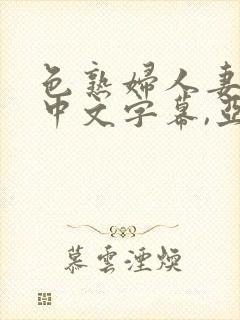 色熟婦人妻
中文字幕,亞
慕雲湮煙